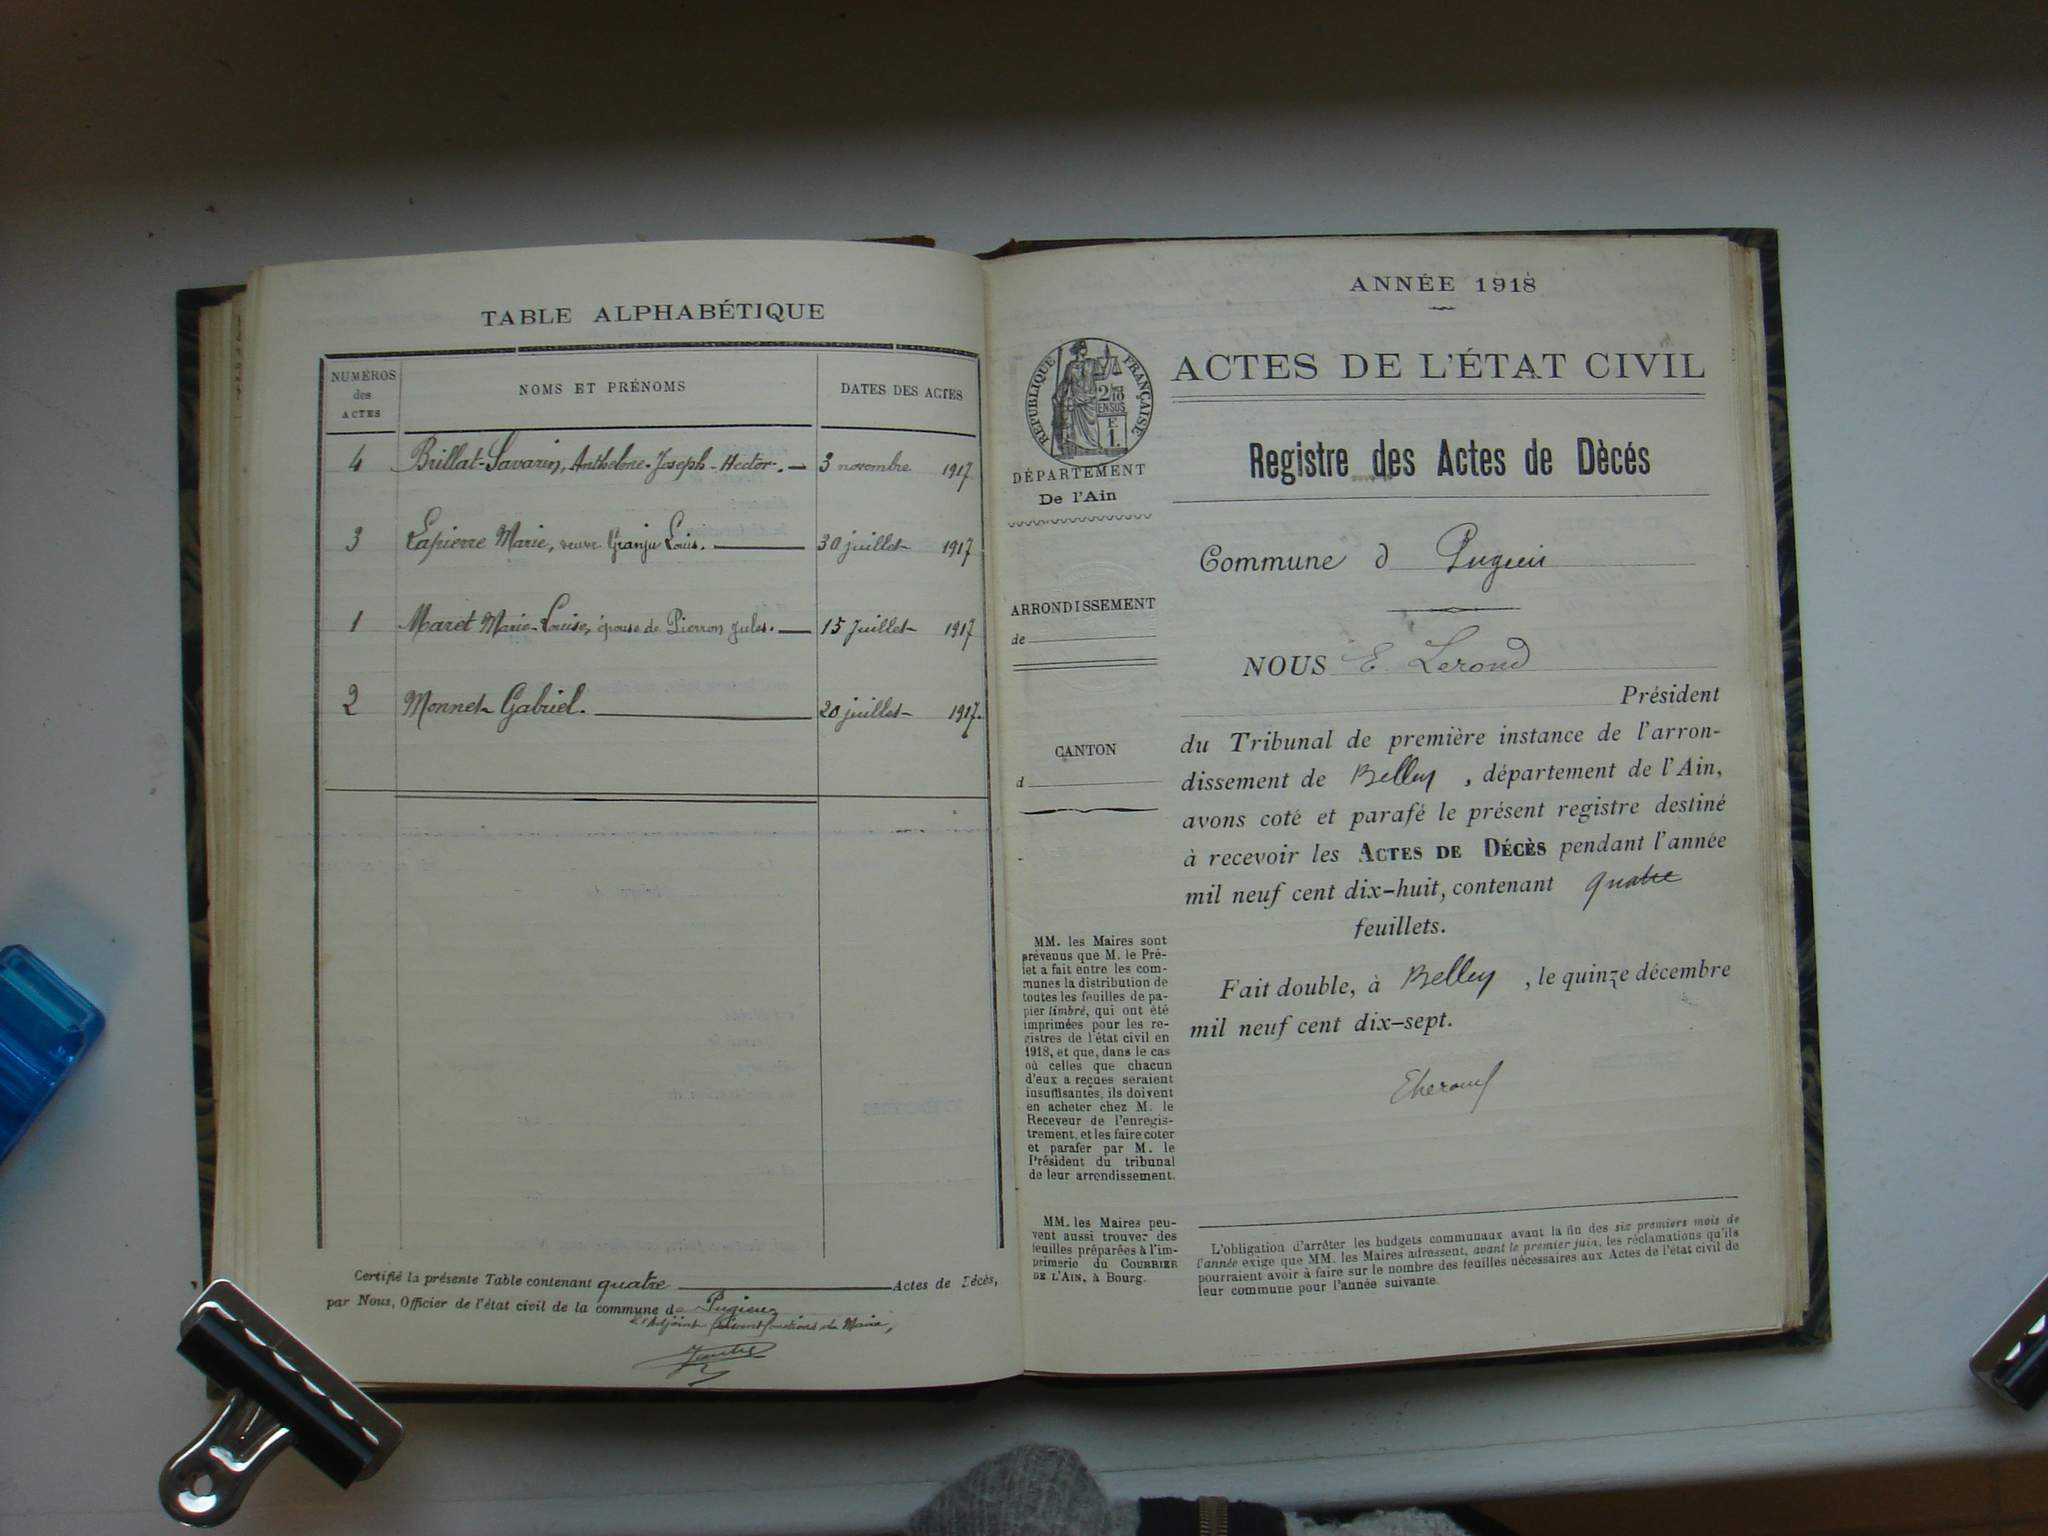 TABLE ALPHABÉTIQUE
NUMÉROS des ACTES
NOMS ET PRÉNOMS
DATES DES ACTES
4 Brillat-Savarin, Anthelme-Joseph-Hector. 3 novembre 1917
3 Lapierre Marie, veuve Granju Louis. 30 juillet 1917
1 Maret Marie-Louise, épouse de Pierron Jules. 15 Juillet 1917
2 Monnet Gabriel. 20 juillet 1917.
Certifié la présente Table contenant quatre Actes de Décès,
par Nous, Officier de l'état civil de la commune de Pugieu
l'Adjoint faisant fonctions de Maire,
ANNÉE 1918
RÉPUBLIQUE FRANÇAISE
2/10
EN SUS
E
1.
DÉPARTEMENT
De l'Ain
ARRONDISSEMENT
de
CANTON
d
MM. les Maires sont
prévenus que M. le Pré-
fet a fait entre les com-
munes la distribution de
toutes les feuilles de pa-
pier timbré, qui ont été
imprimées pour les re-
gistres de l'état civil en
1918, et que, dans le cas
où celles que chacun
d'eux a reçues seraient
insuffisantes, ils doivent
en acheter chez M. le
Receveur de l'enregis-
trement, et les faire coter
et parafer par M. le
Président du tribunal
de leur arrondissement.
MM. les Maires peu-
vent aussi trouver des
feuilles préparées à l'im-
primerie du COURRIER
DE L'AIN, à Bourg.
ACTES DE L'ÉTAT CIVIL
Registre des Actes de Dècés
Commune d Pugieu
NOUS E. Lerond
Président
du Tribunal de première instance de l'arron-
dissement de Belley, département de l'Ain,
avons coté et parafé le présent registre destiné
à recevoir les ACTES DE DÉCÈS pendant l'année
mil neuf cent dix-huit, contenant quatre
feuillets.
Fait double, à Belley, le quinze décembre
mil neuf cent dix-sept.
ELerond
L'obligation d'arrêter les budgets communaux avant la fin des six premiers mois de
l'année exige que MM. les Maires adressent, avant le premier juin, les réclamations qu'ils
pourraient avoir à faire sur le nombre des feuilles nécessaires aux Actes de l'état civil de
leur commune pour l'année suivante.